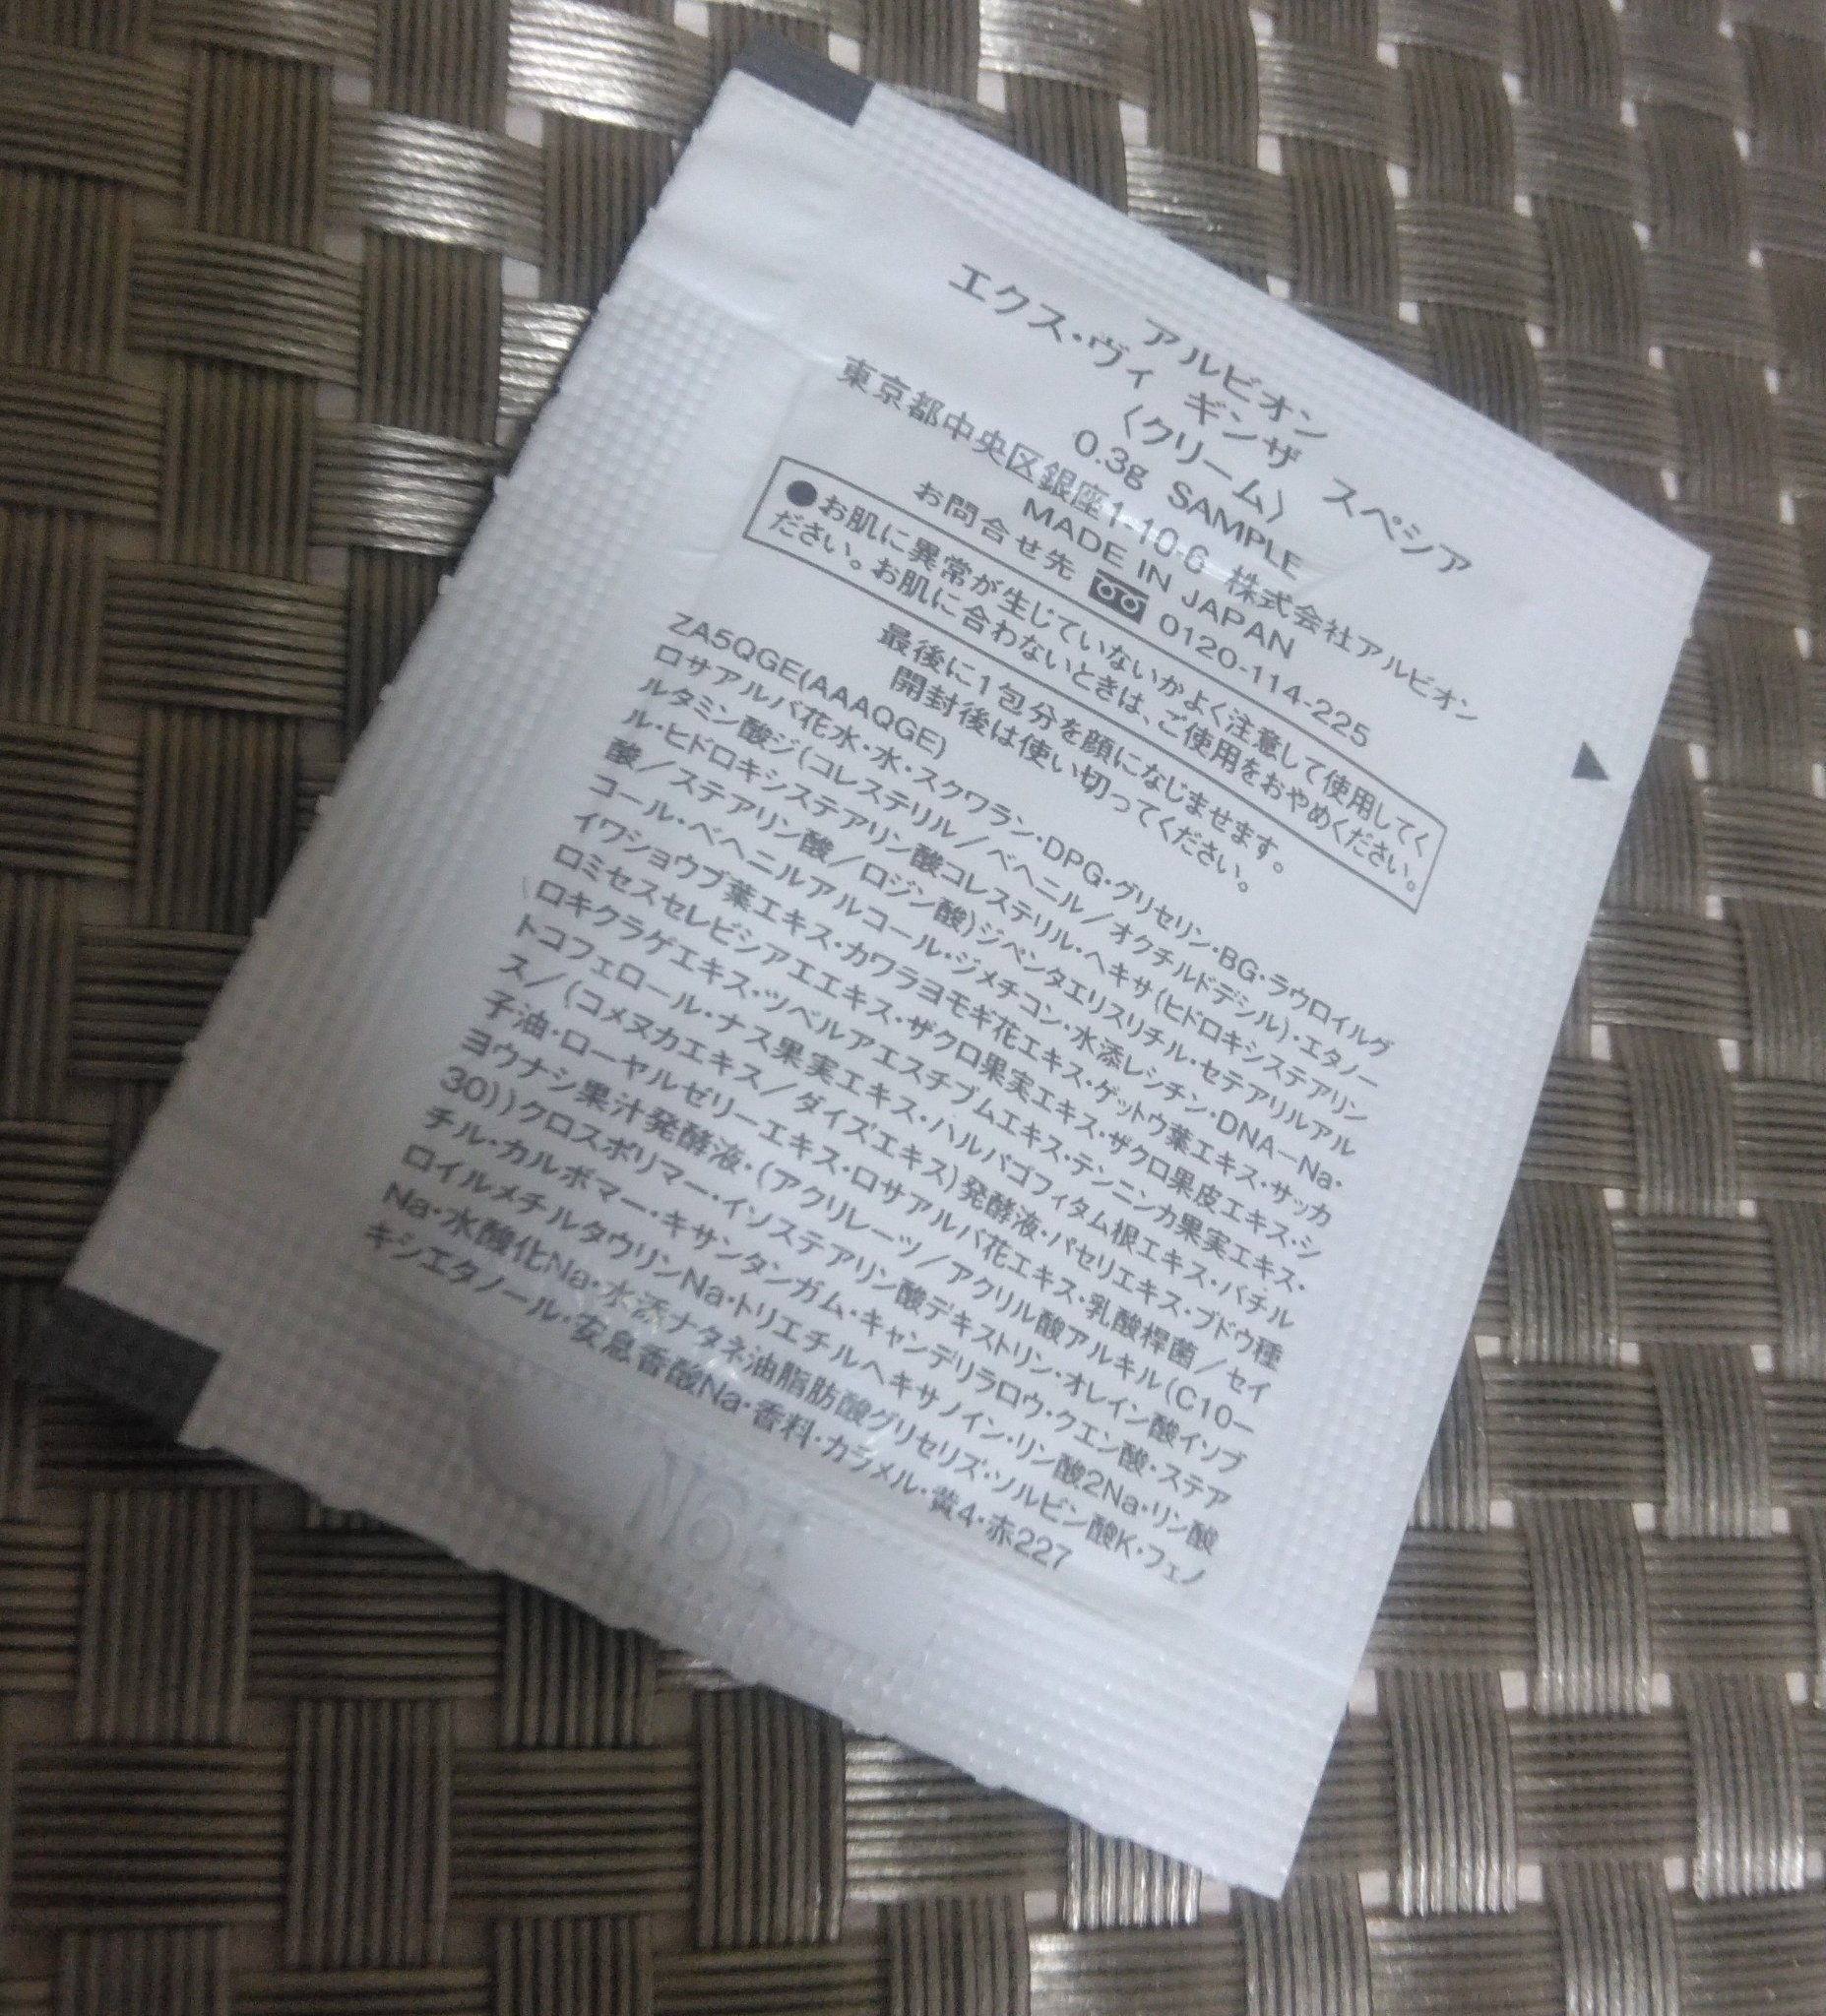 アルビオン
エクス・ヴィ ギンザ スペシア
〈クリーム〉
0.3g SAMPLE
東京都中央区銀座1-10-6 株式会社アルビオン
MADE IN JAPAN
お問合せ先 0120-114-225
●お肌に異常が生じていないかよく注意して使用してく
ださい。お肌に合わないときは、ご使用をおやめください。
最後に1包分を顔になじませます。
開封後は使い切ってください。
ZA5QGE(AAAQGE)
ロサアルバ花水・水・スクワラン・DPG・グリセリン・BG・ラウロイルグ
ルタミン酸ジ(コレステリル/ベヘニル/オクチルドデシル)・エタノー
ル・ヒドロキシステアリン酸コレステリル・ヘキサ(ヒドロキシステアリン
酸/ステアリン酸/ロジン酸)ジペンタエリスリチル・セテアリルアル
コール・ベヘニルアルコール・ジメチコン・水添レシチン・DNA-Na・
イワショウブ葉エキス・カワラヨモギ花エキス・ゲットウ葉エキス・サッカ
ロミセスセレビシアエエキス・ザクロ果実エキス・ザクロ果皮エキス・シ
ロキクラゲエキス・ツベルアエスチブムエキス・テンニンカ果実エキス・
トコフェロール・ナス果実エキス・ハルパゴフィタム根エキス・バチル
ス/(コメヌカエキス/ダイズエキス)発酵液・パセリエキス・ブドウ種
子油・ローヤルゼリーエキス・ロサアルバ花エキス・乳酸桿菌/セイ
ヨウナシ果汁発酵液・(アクリレーツ/アクリル酸アルキル(C10-
30))クロスポリマー・イソステアリン酸デキストリン・オレイン酸イソブ
チル・カルボマー・キサンタンガム・キャンデリラロウ・クエン酸・ステア
ロイルメチルタウリンNa・トリエチルヘキサノイン・リン酸2Na・リン酸
Na・水酸化Na・水添ナタネ油脂肪酸グリセリズ・ソルビン酸K・フェノ
キシエタノール・安息香酸Na・香料・カラメル・黄4・赤227